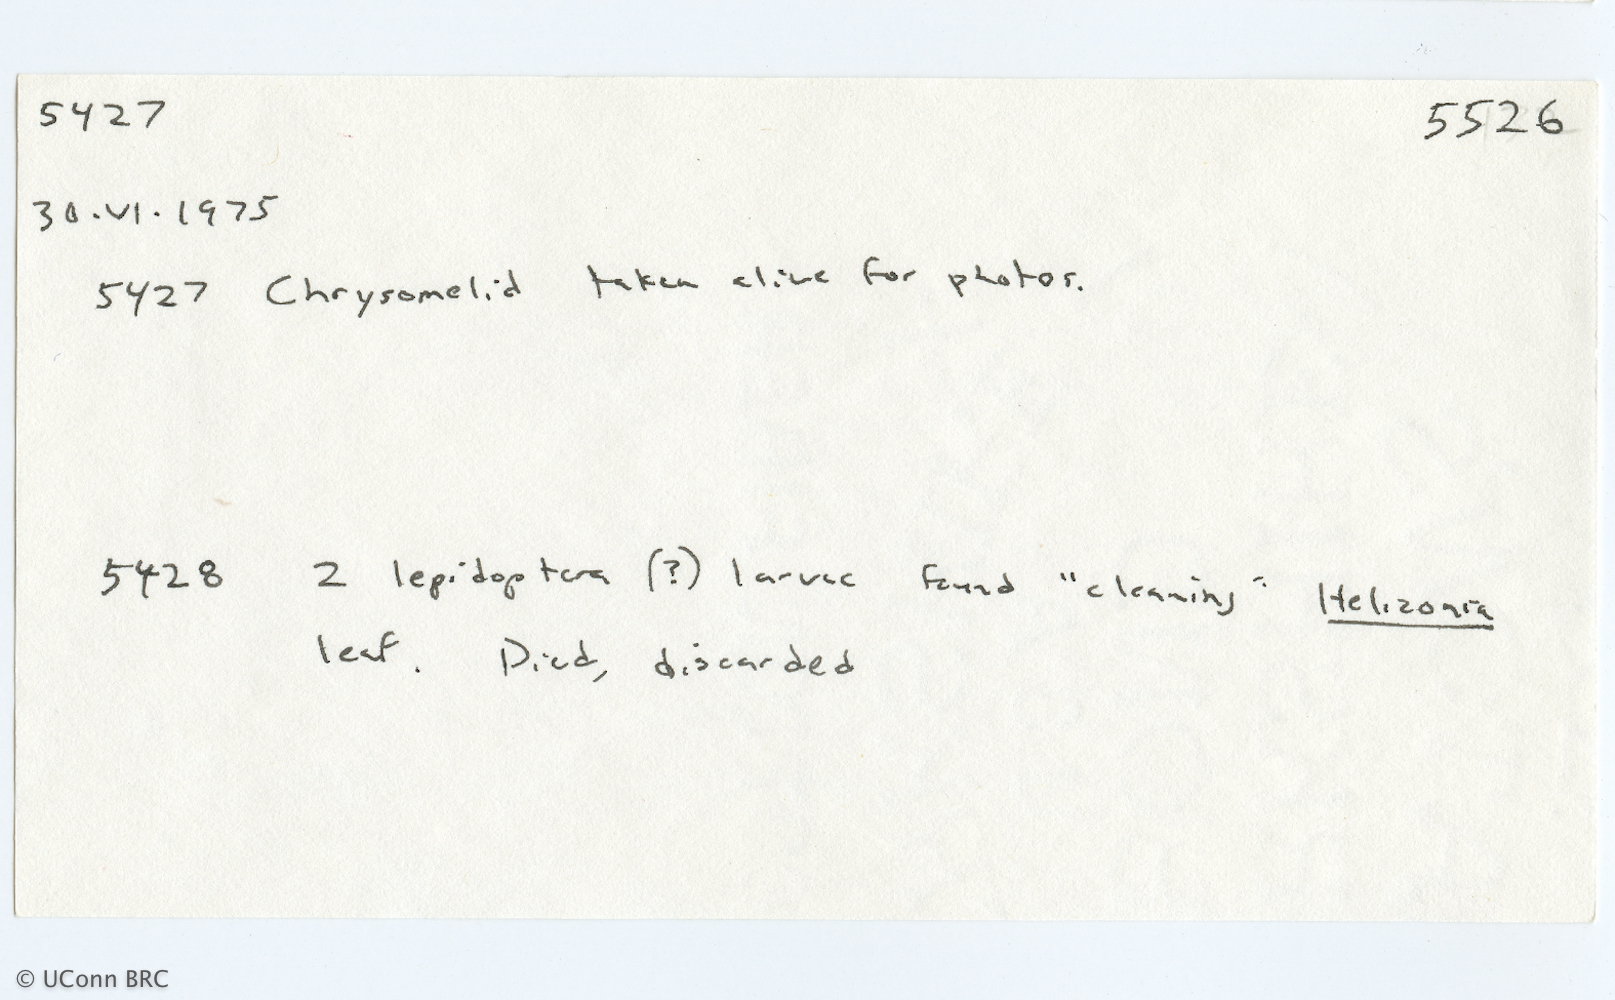 5427 5526
30.VI.1975
5427 Chrysomelid taken alive for photos.
5428 2 lepidoptera (?) larvae found "cleaning" Helizonia
leaf. Died, discarded
© UConn BRC